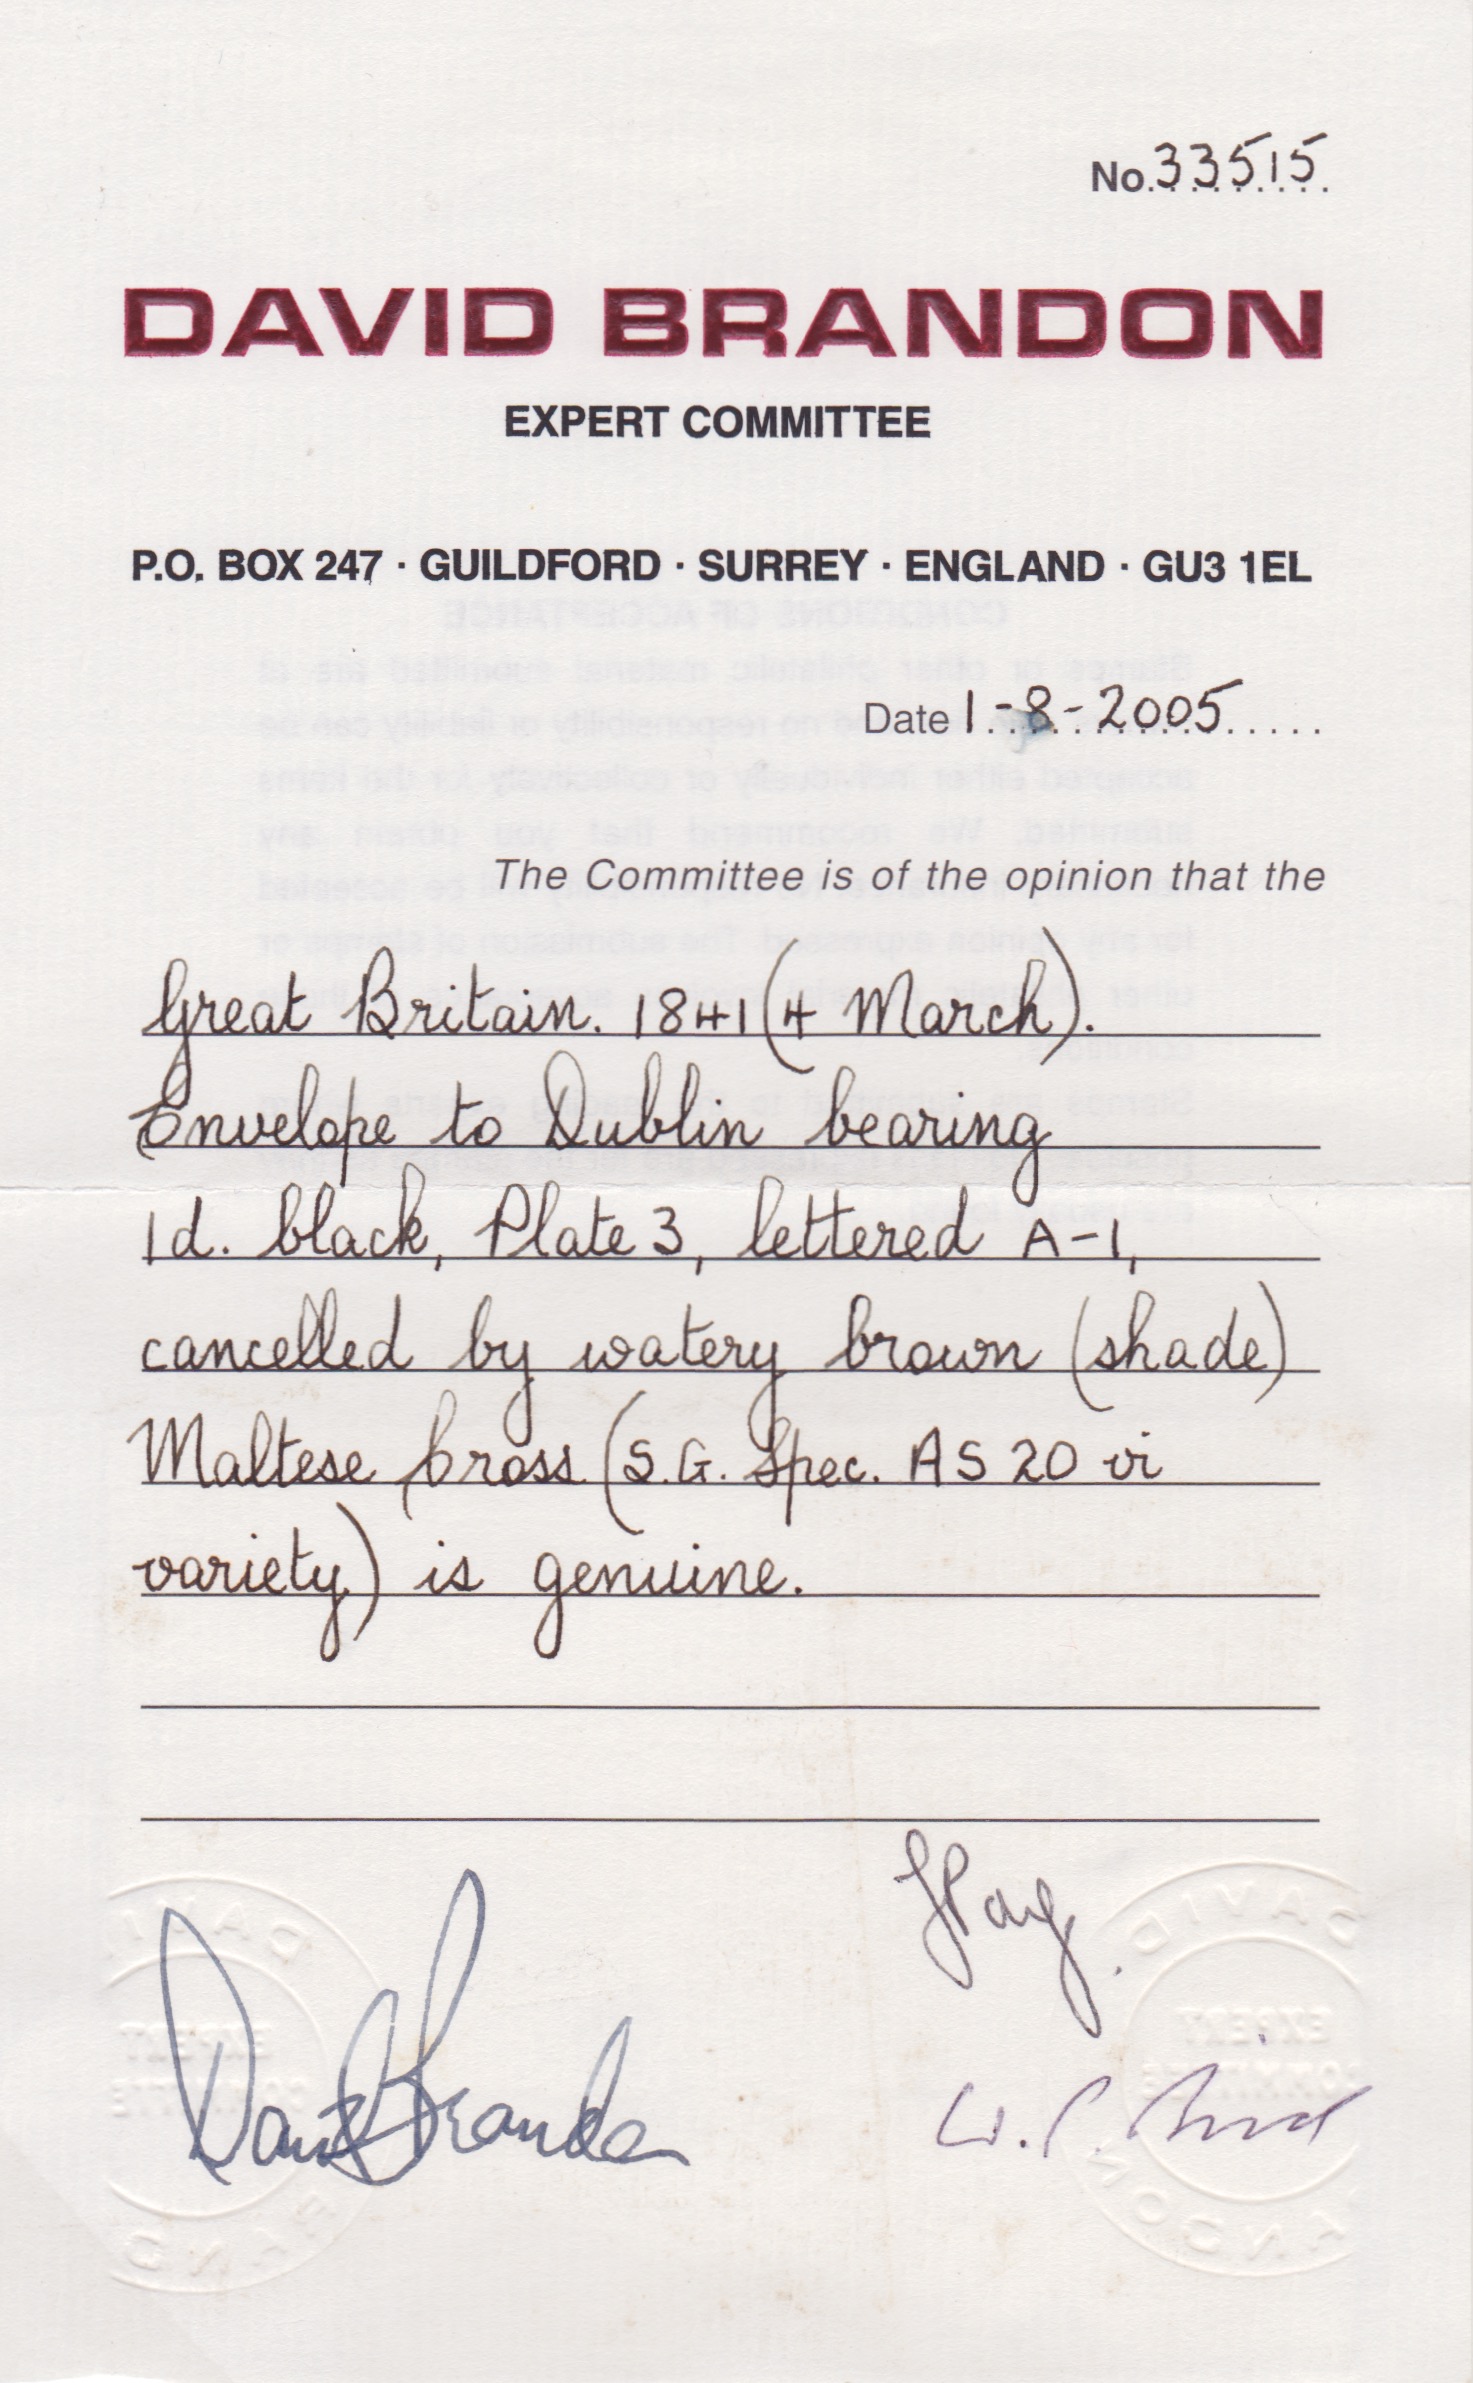 No. 33515
DAVID BRANDON
EXPERT COMMITTEE
P.O. BOX 247 · GUILDFORD · SURREY · ENGLAND · GU3 1EL
Date 1-8-2005
The Committee is of the opinion that the
Great Britain. 1841 (4 March).
Envelope to Dublin bearing
1d. black, Plate 3, lettered A-1,
cancelled by watery brown (shade)
Maltese Cross (S.G. Spec. AS 20 vi
variety) is genuine.
David Brandon